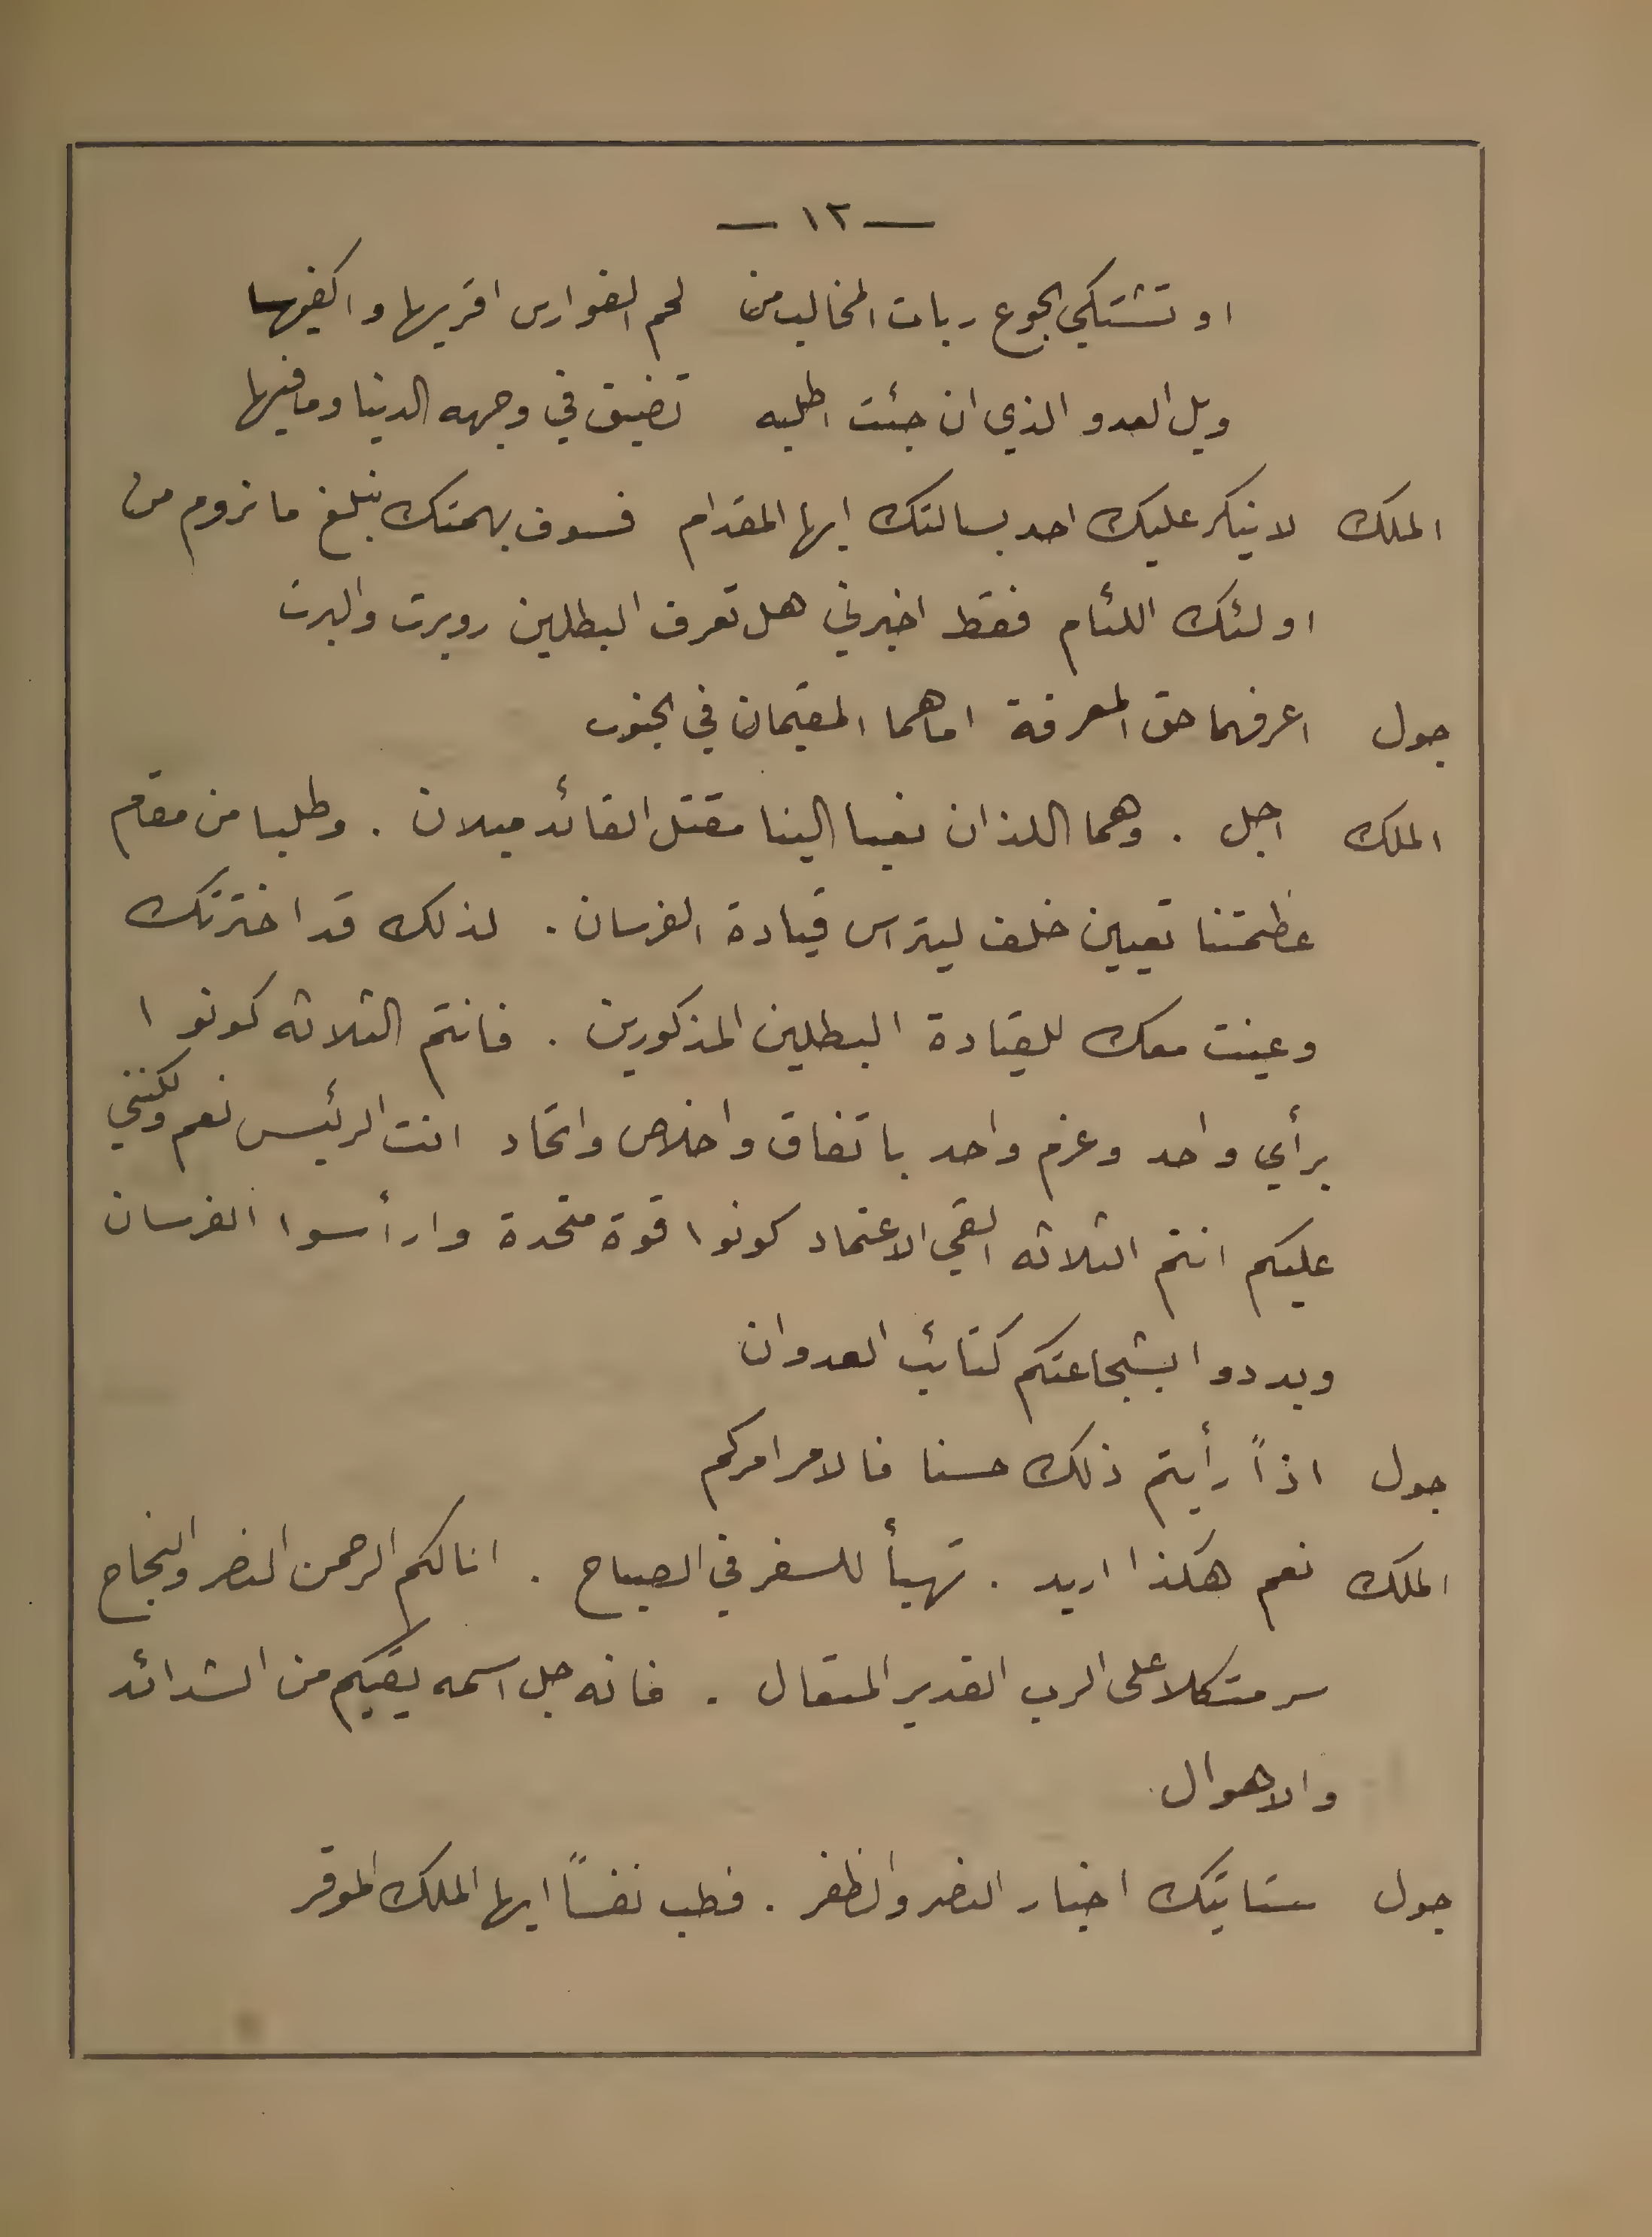 — ١٢ —
او تشتكي الجوع ربات المخالب من لحم الفوارس اقريها واكفيها
ويل العدو الذي ان جئت اطلبه تضيق في وجهه الدنيا وما فيها
الملك لا ينكر عليك احد بسالتك ايها المقدام فسوف بهمتك نبلغ ما نروم من
اولئك اللئام فقط اخبرني هل تعرف البطلين روبرت والبرت
جول اعرفهما حق المعرفة اما هما المقيمان في الجنوب
الملك اجل . وهما اللذان نعيا الينا مقتل القائد ميلان . وطلبا من مقام
عظمتنا تعيين خلف ليتراس قيادة الفرسان . لذلك قد اخترتك
وعينت معك للقيادة البطلين المذكورين . فانتم الثلاثه كونوا
برأي واحد وعزم واحد باتفاق واخلاص واتحاد انت الرئيس نعم ولكنني
عليكم انتم الثلاثه القي الاعتماد كونوا قوة متحدة وارأسوا الفرسان
وبددوا بشجاعتكم كتائب العدوان
جول اذاً رأيتم ذلك حسنا فالامر امركم
الملك نعم هكذا اريد . تهيأ للسفر في الصباح . انالكم الرحمن النصر والنجاح
سر متكلا على الرب القدير المتعال . فانه جل اسمه يقيكم من الشدائد
والاهوال
جول ستاتيك اخبار النصر والظفر . فطب نفساً ايها الملك الموقر